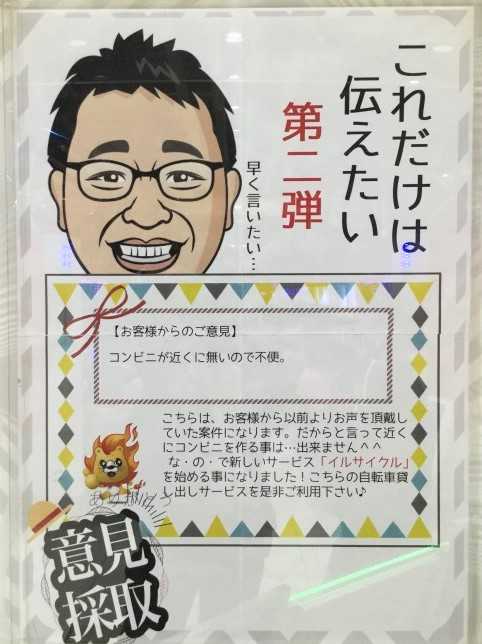 これだけは
伝えたい
第二弾
早く言いたい…
【お客様からのご意見】
コンビニが近くに無いので不便。
こちらは、お客様から以前よりお声を頂戴し
ていた案件になります。だからと言って近く
にコンビニを作る事は…出来ません^^
な・の・で新しいサービス「イルサイクル」
を始める事になりました！こちらの自転車貸
し出しサービスを是非ご利用下さい♪
意見
採取